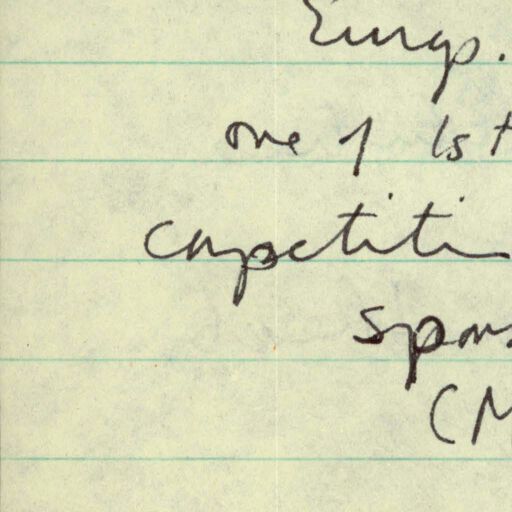 Europ.
one of 1st
competiti
spons
(M